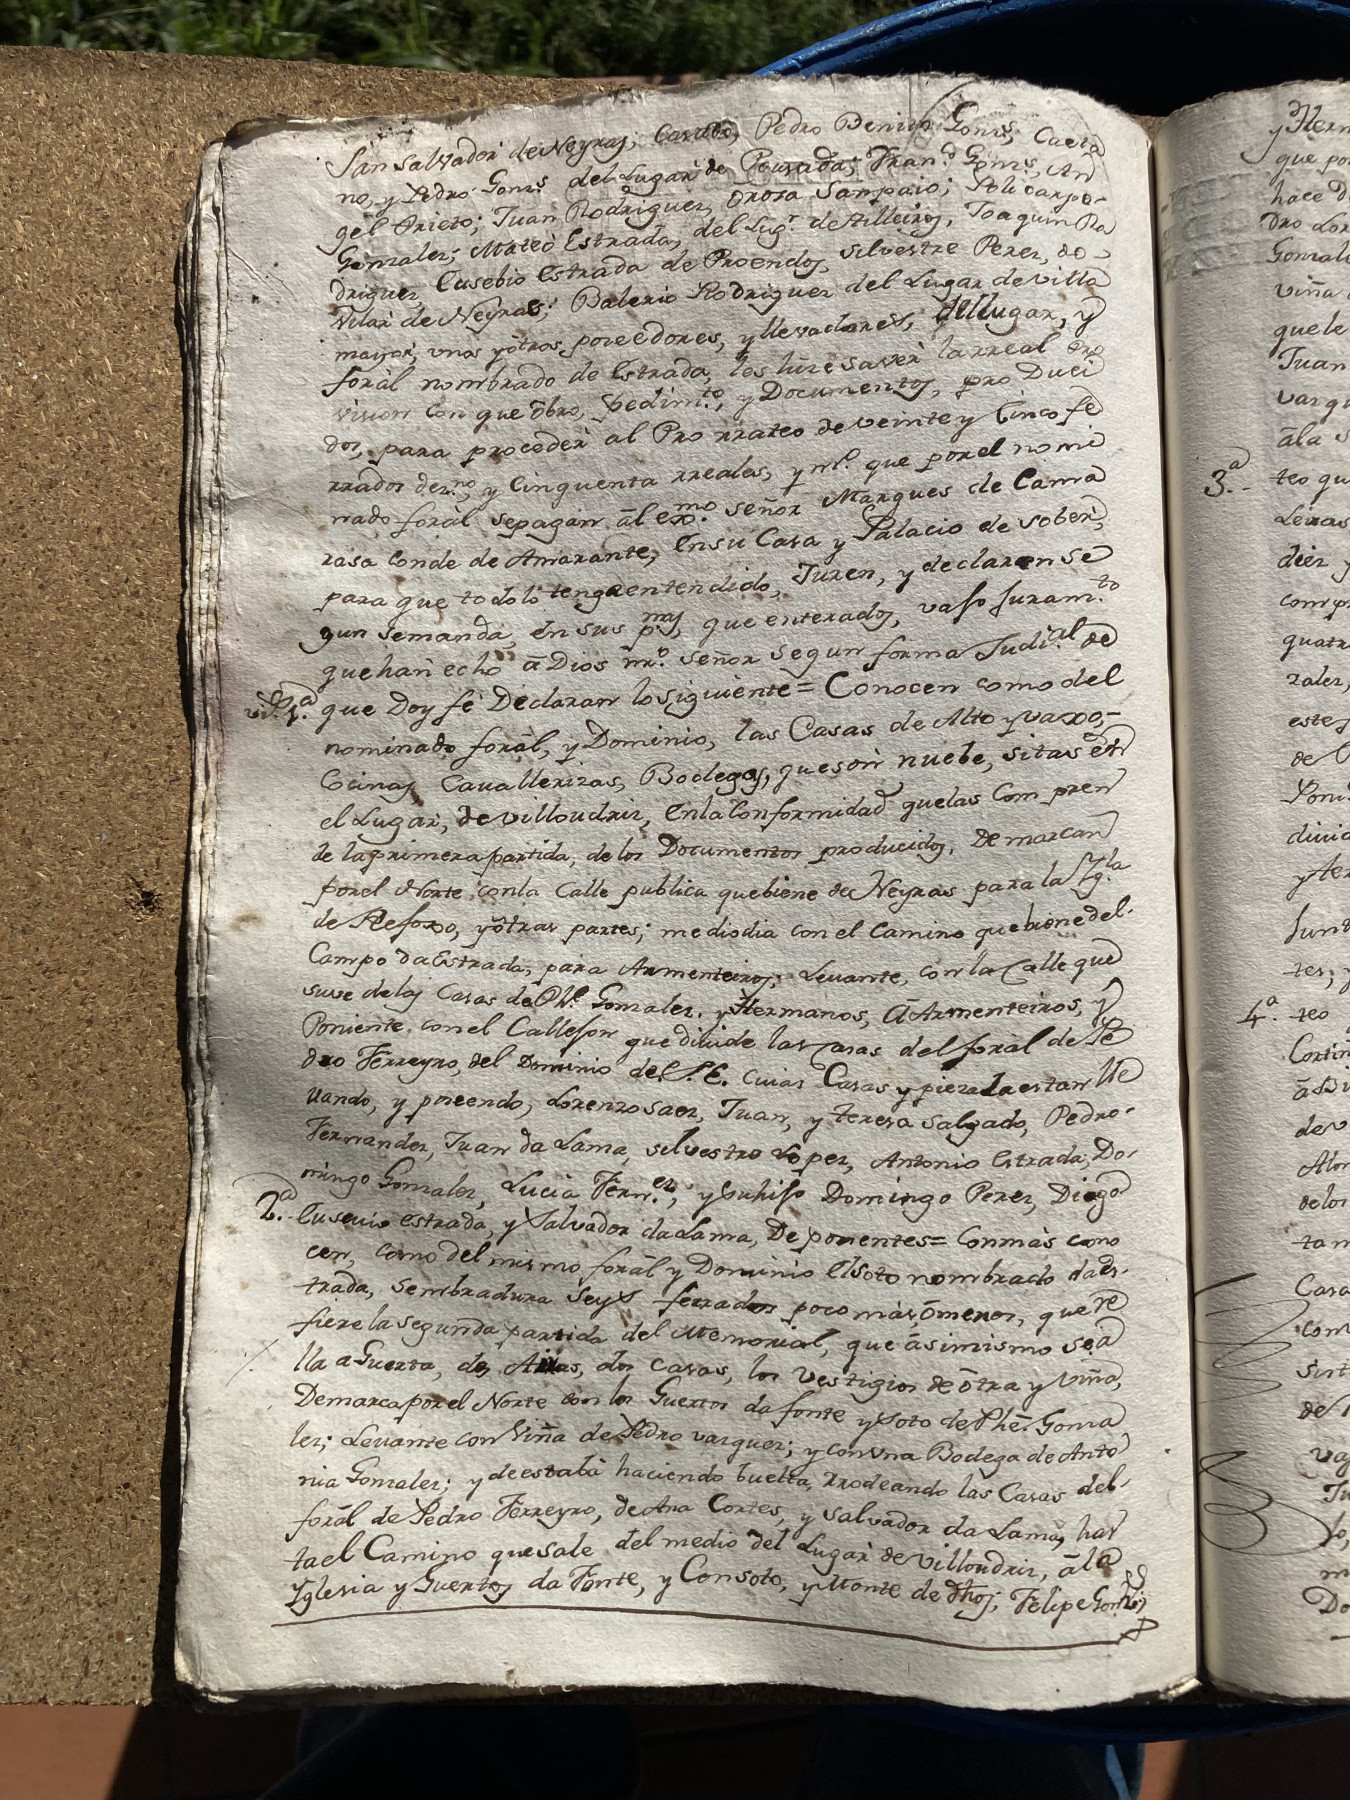 San salvador de Neyras, Pedro Benito Gonzs, Caeta
no, y Pedro Gonzs del Lugar de Pousada; Franco Gonzs, An
gel Prieto; Juan Rodriguez, Orosa Sampaio; Policarpo
Gonzalez; Mateo Estrada, del Lugr. de Alleiros, Joaquin Ro
driguez, Eusebio Estrada de Proendos, silvestre Perez, do
Vilar de Neyras; Balerio Rodriguez del Lugar de villa
mayor, unos y ôtros poseedores, y llevadores, dellugar, y
forál nombrado de Estrada, les hize saver la rreal Pro
vision con que ôbro, Pedimto, y Documentos, pro Duci
dos, para proceder al Pro rrateo de veinte y Cinco fe
rrados de zno, y Cinquenta rreales, y mo. que por el nomi
nado forál sepagan âl exmo. señor Marques de Cama
rasa Conde de Amarante, Ensu Casa y Palacio de sober,
para que todo lo tenga entendido, Juren, y declaren se
gun semanda, en sus pnas, que enterados, vajo Juramto
que han echo â Dios nro. señor segun forma Judial de
1.a que Doy feé Declaran lo siguiente= Conocen como del
nominado forál, y Dominio, las Casas de Alto y vaxo,-
Cocinas, Cavallerizas, Bodegas, que son nuebe, sitas en
el Lugar, de villoudriz, Enla Conformidad que las Com pren
de la primera partida, de los Documentos producidos, Demarcan
por el Norte con la Calle publica que biene de Neyras para la Ygla
de Refoxo, y ôtras partes; mediodia con el Camino que biene del
Campo da Estrada, para Armenteiros; Levante, con la Calle que
suve de las Casas de Phe. Gonzalez. y Hermanos, â Armenteiros, y
Poniente con el Callejon que divide las Casas del forál de Pe
dro Ferreyro, del Dominio de S.E. cuias Casas y pieza la estan lle
vando, y poseendo, Lorenzo saez, Juan, y teresa salgado, Pedro
Fernandez, Juan da Lama, silvestre Lopez, Antonio Estrada, Do-
mingo Gonzalez, Lucia Fernez, y su hijo Domingo Perez, Diego
2.a Eusevio estrada, y Salvador da Lama, Deponentes= Conmàs cono
cen, como del mismo forál y Dominio el soto nombrado da es-
trada, sembradura seys ferrados poco màs, ô menos, que re
fiere la segunda partida del Memorial, que âsimismo se â
lla a Guerta, de Airas, dos casas, los vestigios de ôtra y viña,
Demarca por el Norte con los Guertos da fonte y soto de Phe. Gonza
lez; Levante con Viña de Pedro vazquez; y con una Bodega de Anto
nia Gonzalez; y de estaba haciendo buelta, rrodeando las Casas del
forál de Pedro Ferreyro, de Ana Cortes, y salvador da Lama, has
ta el Camino que sale del medio del Lugar de villoudriz, â la
Yglesia y Guertos da Fonte, y Con soto, y Monte de dhos; Felipe Gonz
y Herm
que po
hace d
dro Lor
Gonzale
viña
que le
Juan
vazqu
âla s
3.a teo qu
Leiras
diez y
compr
quatr
zalez,
este f
de
Poni
divid
y ter
Junt
tes; y
4.a teo
Cortiñ
â si
de v
Alon
de los
tam
Casa
com
sint
de
va
Ju
lo,
m
Do